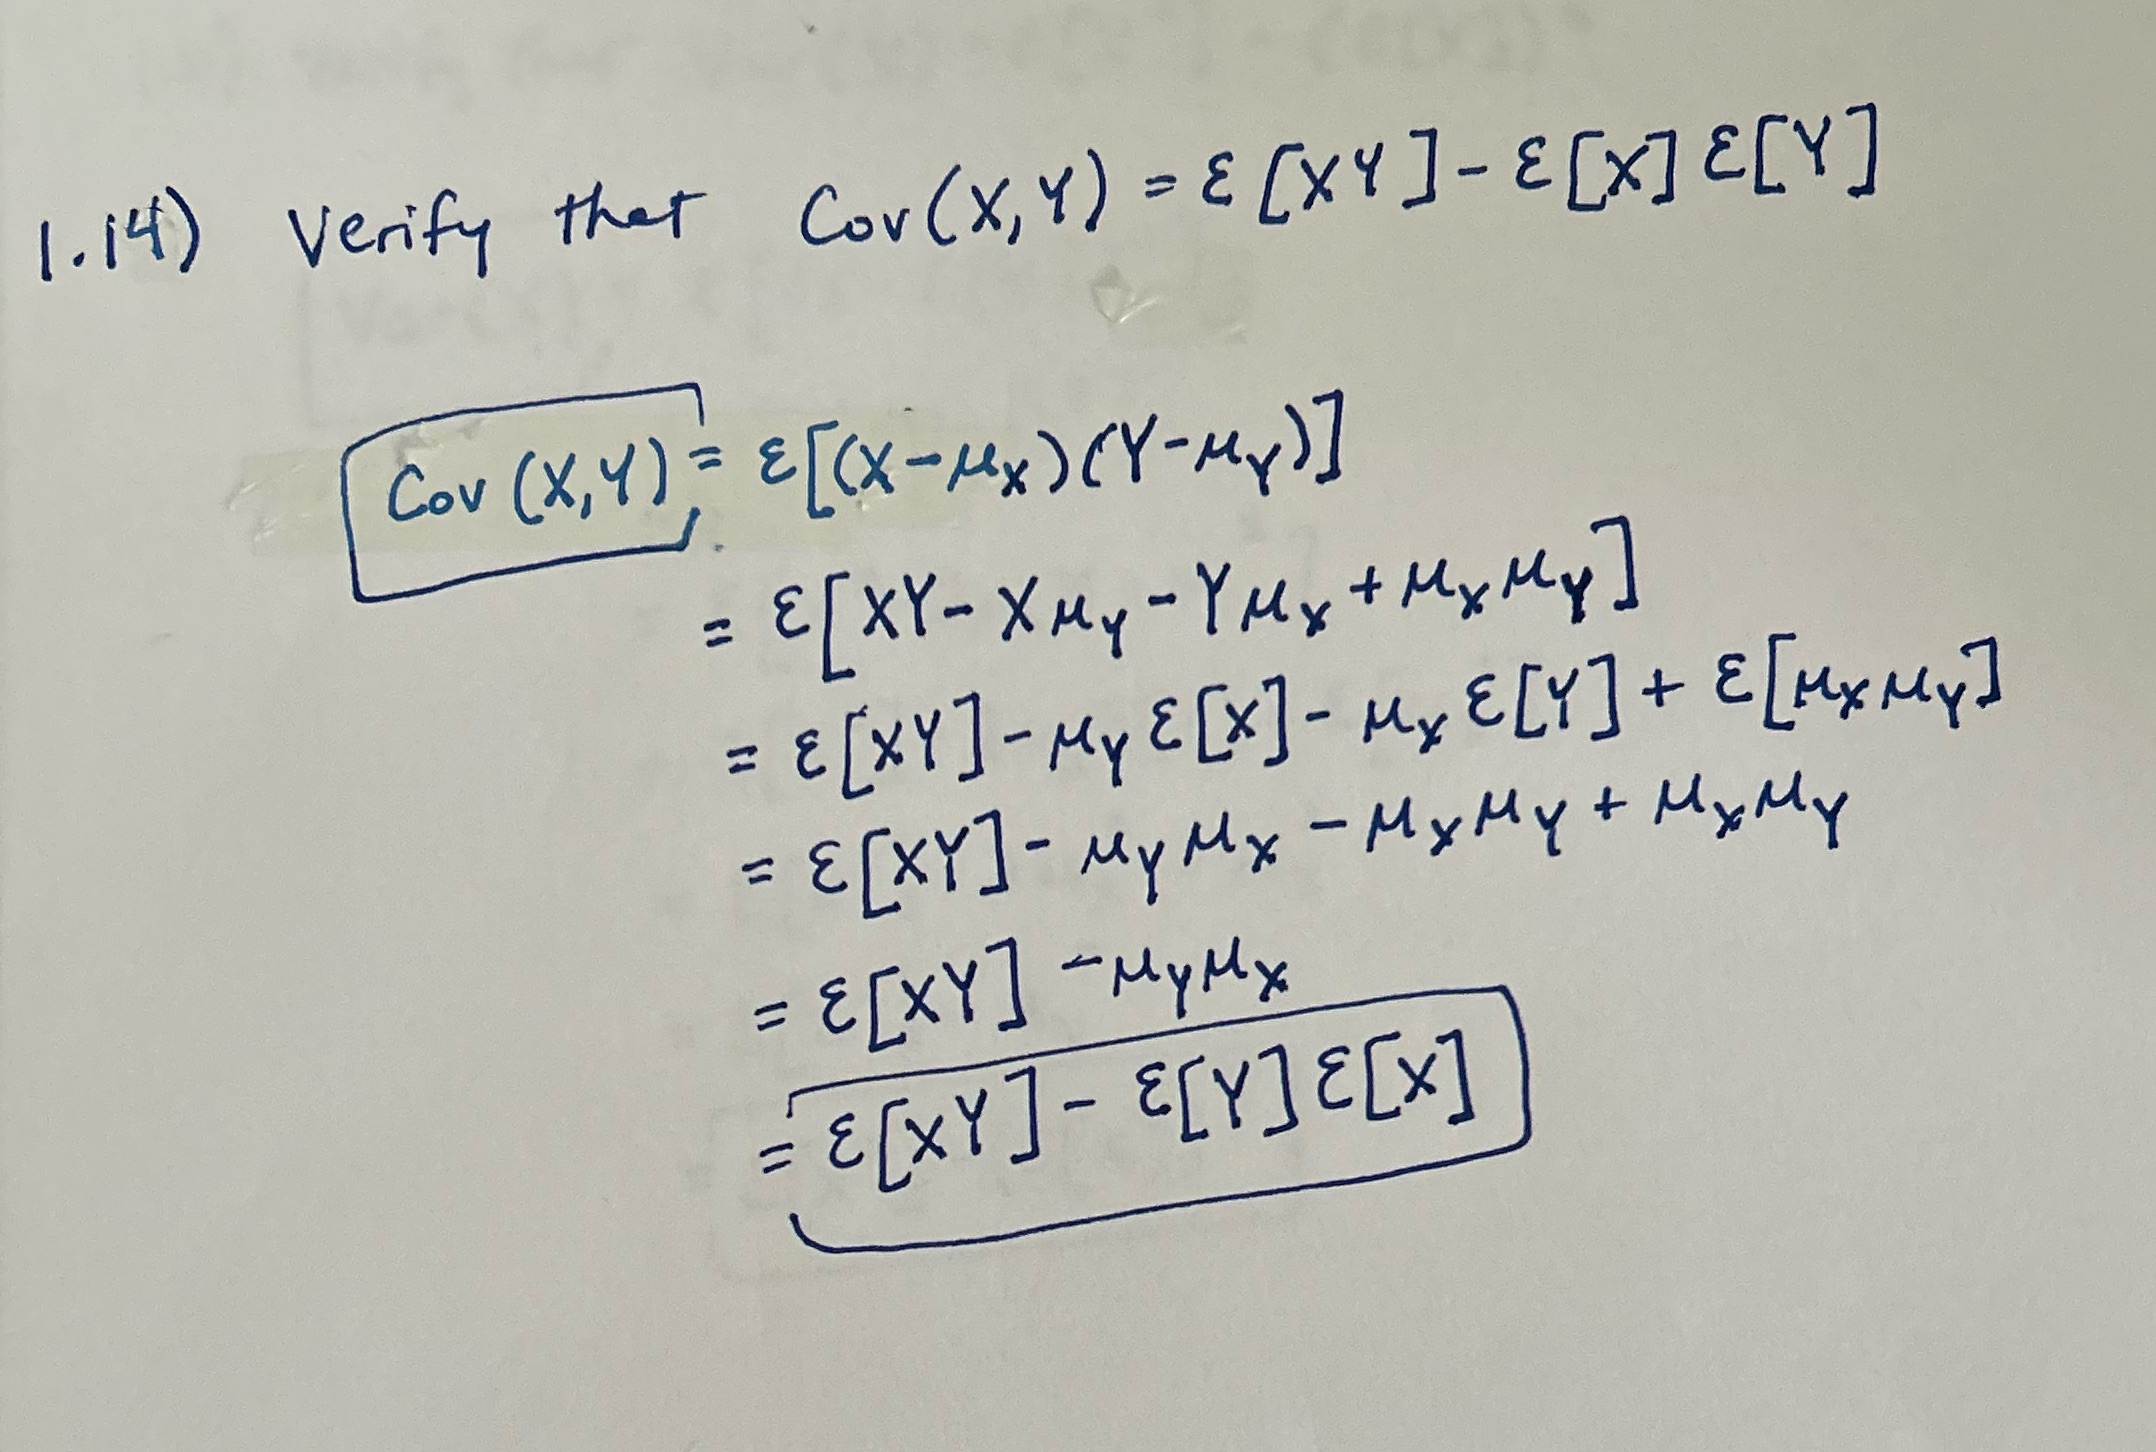 1.14) Verify that Cov(X,Y) = ε[XY] - ε[X] ε[Y]
Cov(X,Y) = ε[(X-μ_X)(Y-μ_Y)]
= ε[XY - Xμ_Y - Yμ_X + μ_X μ_Y]
= ε[XY] - μ_Y ε[X] - μ_X ε[Y] + ε[μ_X μ_Y]
= ε[XY] - μ_Y μ_X - μ_X μ_Y + μ_X μ_Y
= ε[XY] - μ_Y μ_X
= ε[XY] - ε[Y] ε[X]